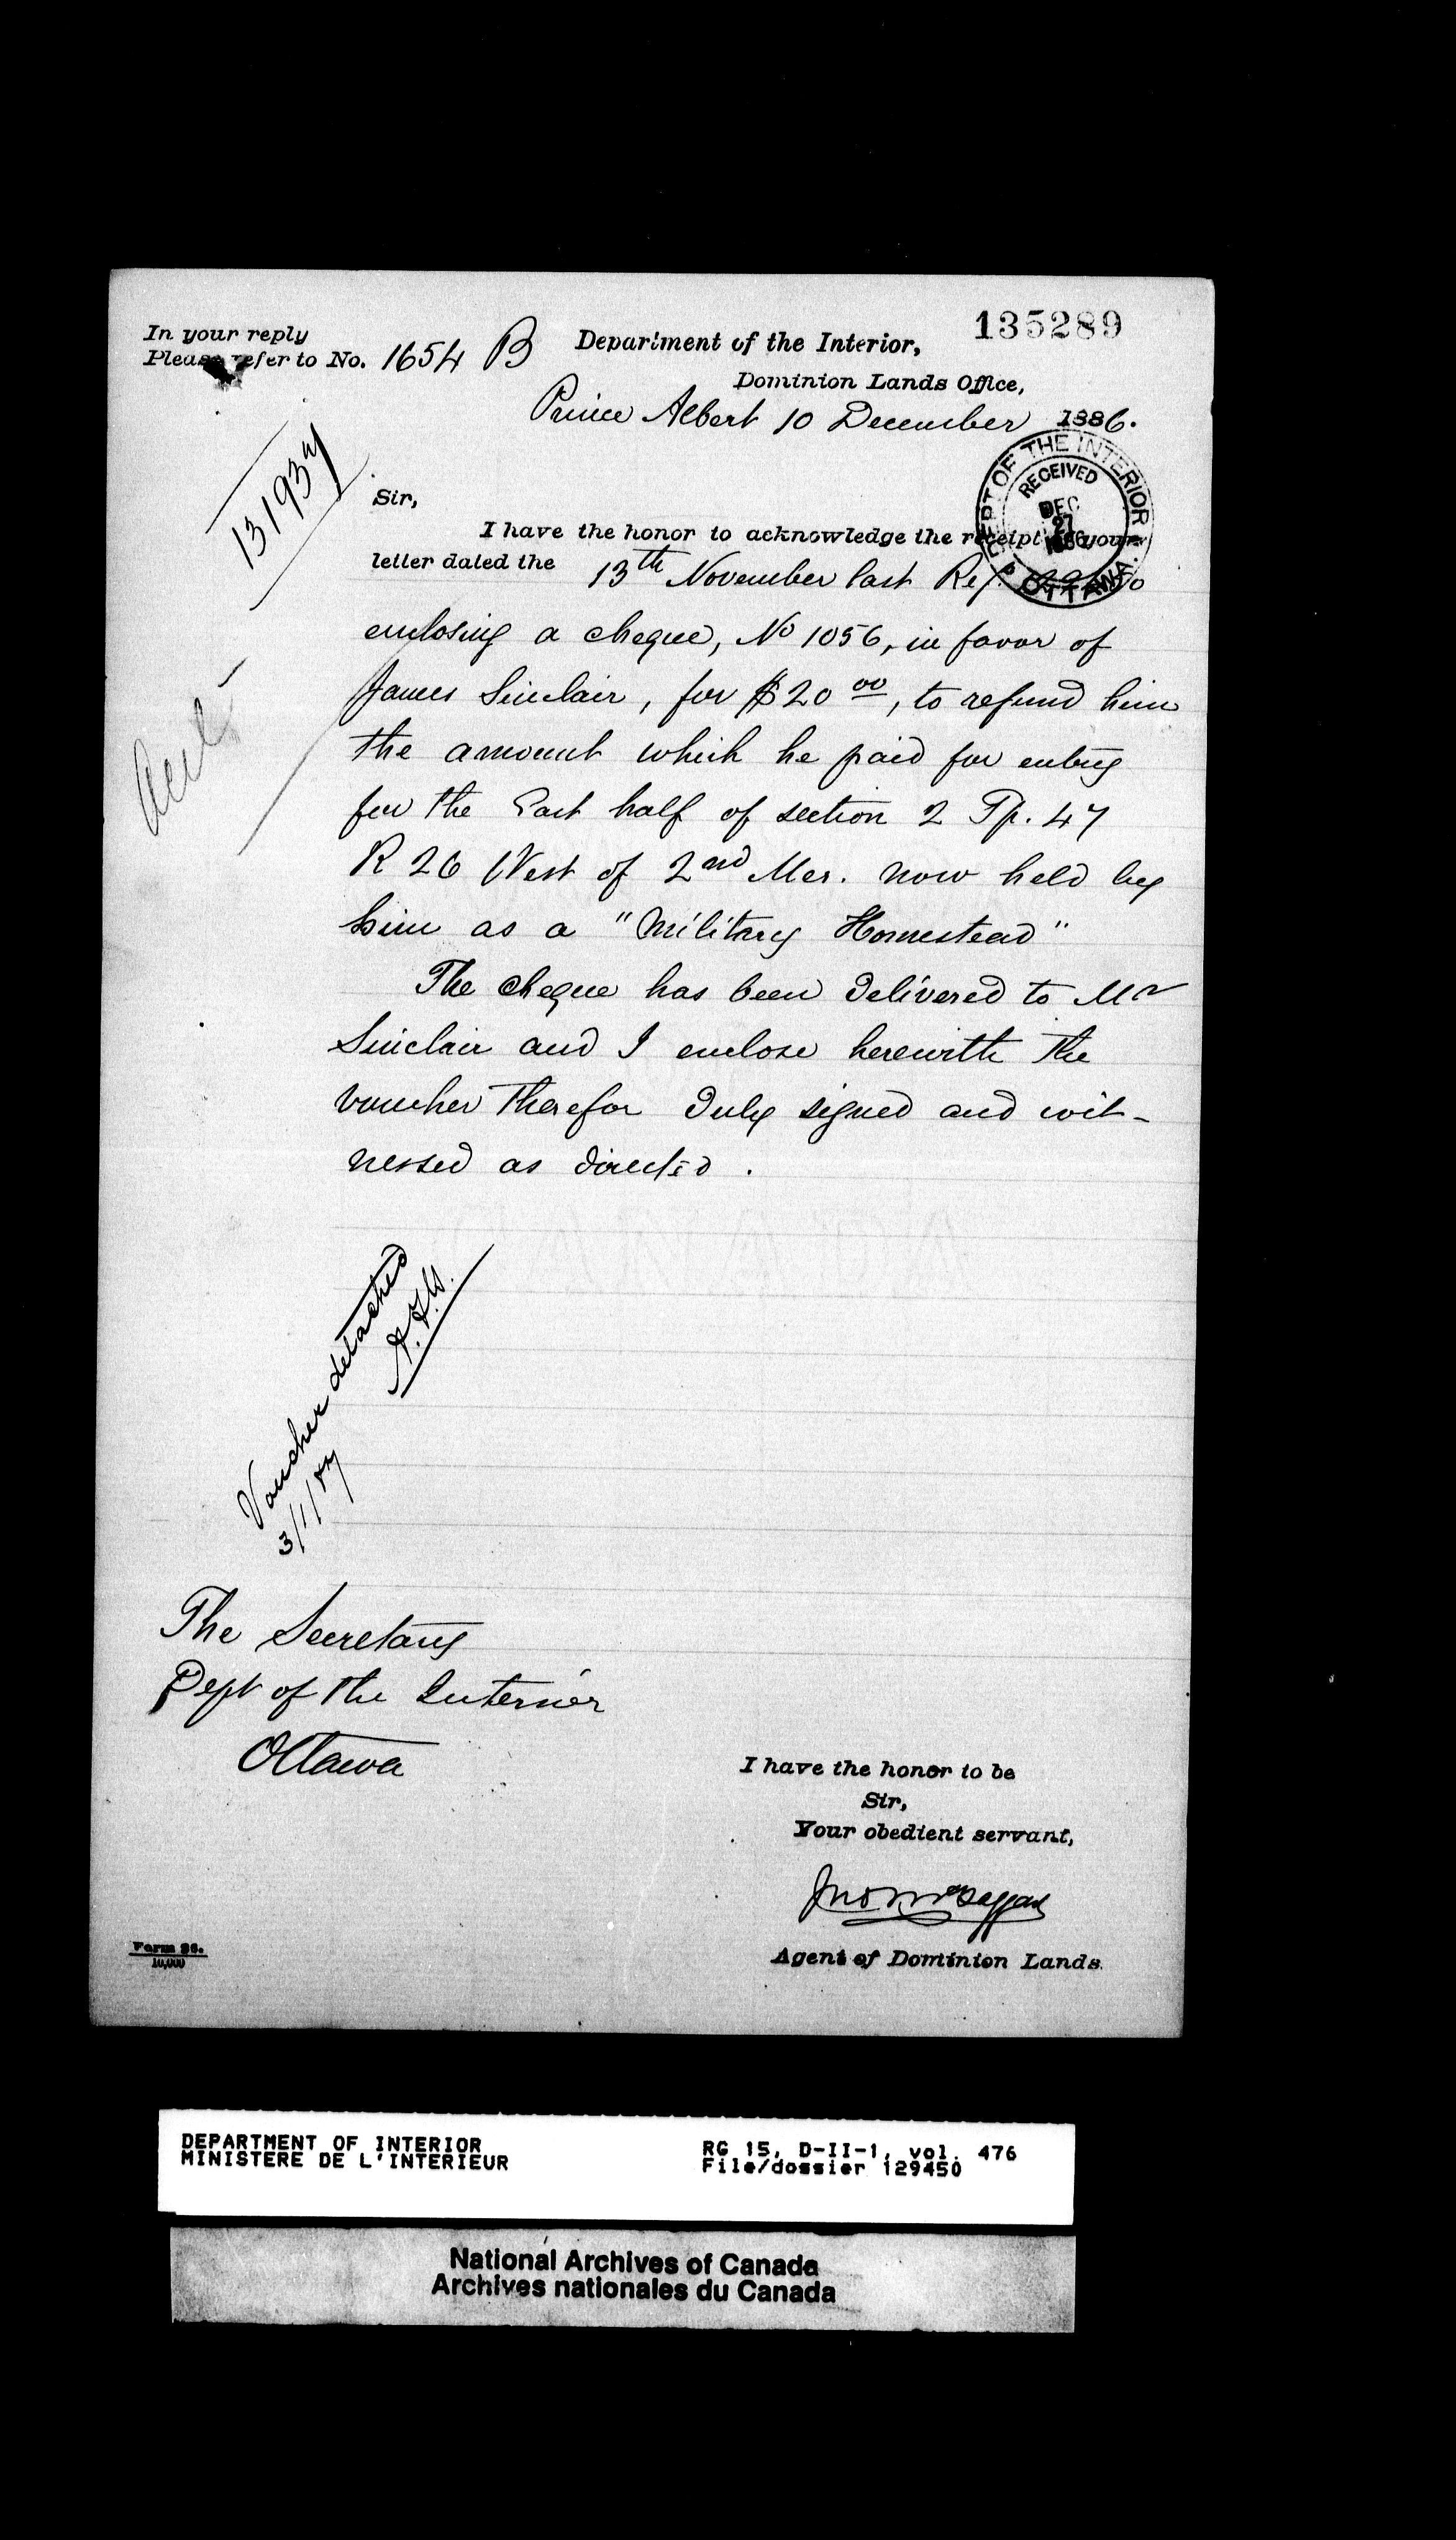 135289
In your reply
Please refer to No. 1654 B
Department of the Interior,
Dominion Lands Office,
Prince Albert 10 December 1886.
131937
DEPT OF THE INTERIOR
RECEIVED
DEC
27
1886
OTTAWA
Sir,
I have the honor to acknowledge the receipt of your
letter dated the 13th November last Ref.
enclosing a cheque, No 1056, in favor of
James Sinclair, for $20 00, to refund him
the amount which he paid for entry
for the East half of section 2 Tp. 47
R 26 West of 2nd Mer. now held by
him as a "Military Homestead"
The cheque has been delivered to Mr
Sinclair and I enclose herewith the
voucher therefor duly signed and wit-
nessed as directed.
Voucher detached
3/1/87
The Secretary
Dept of the Interior
Ottawa
I have the honor to be
Sir,
Your obedient servant,
Agent of Dominion Lands.
Form 26.
10,000
DEPARTMENT OF INTERIOR
MINISTERE DE L'INTERIEUR
RG 15, D-II-1, vol. 476
File/dossier 129450
National Archives of Canada
Archives nationales du Canada